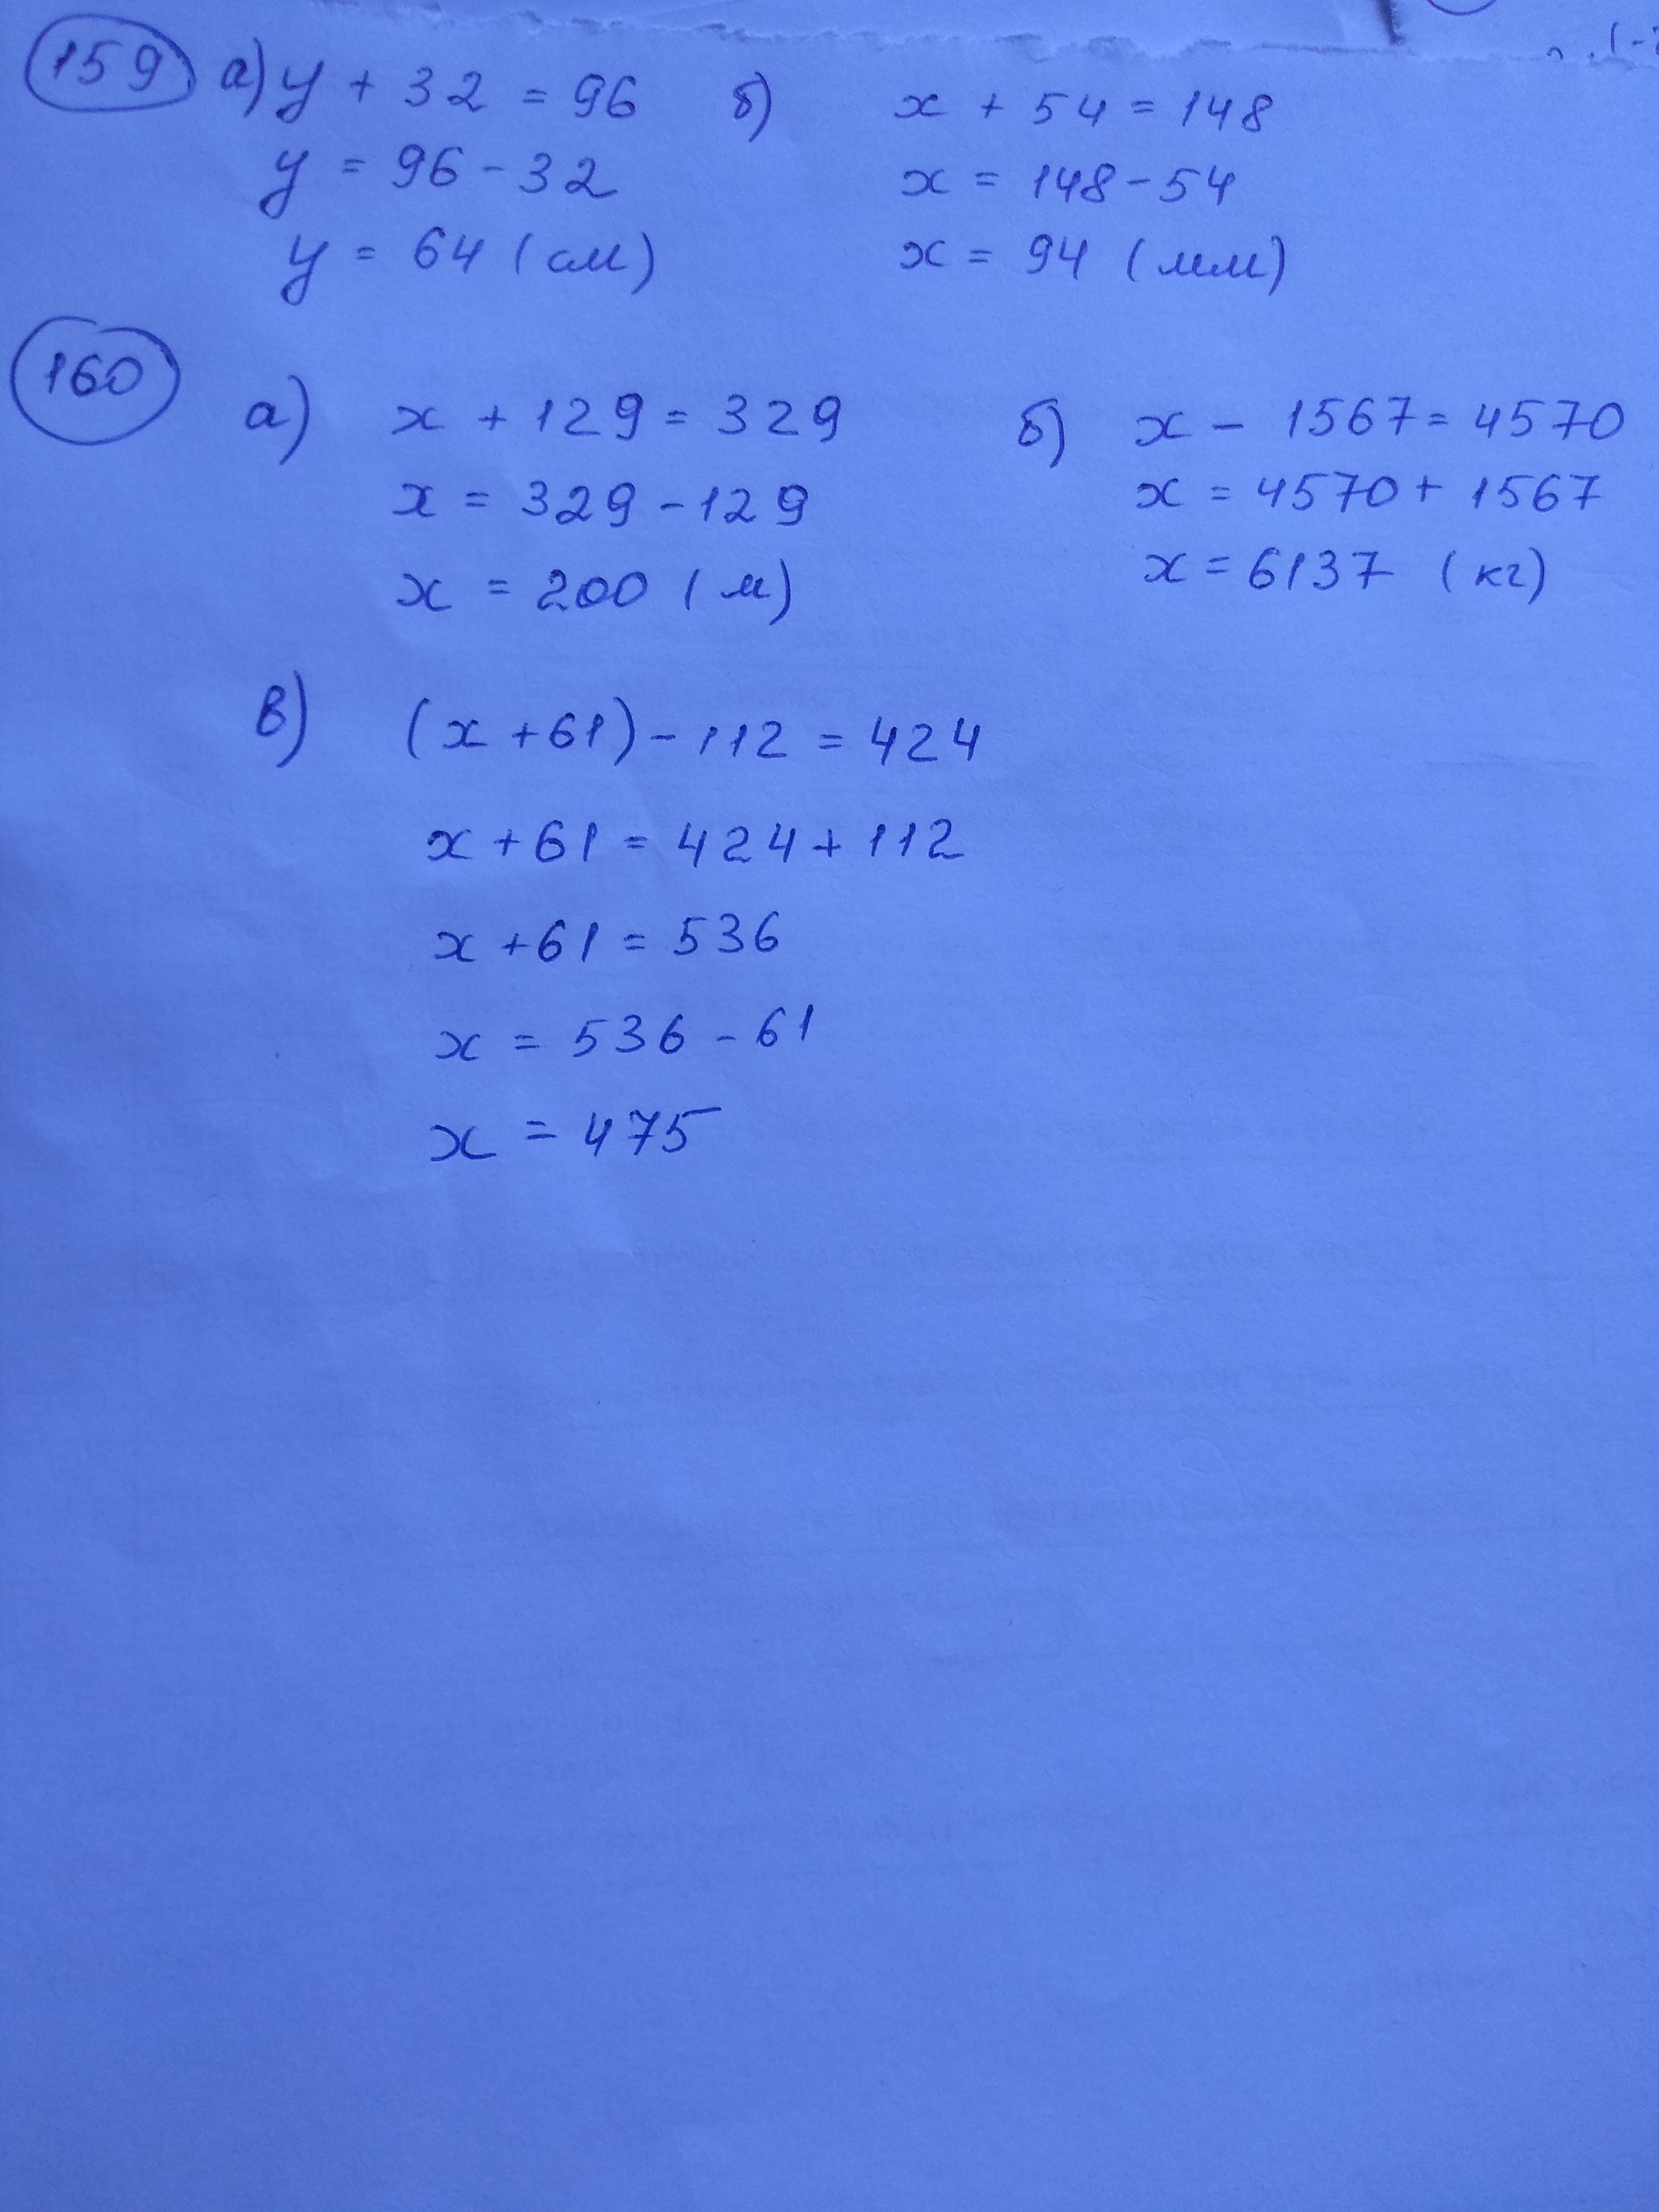 159 а) y + 32 = 96
y = 96 - 32
y = 64 (см)
б) x + 54 = 148
x = 148 - 54
x = 94 (мм)
160
а) x + 129 = 329
x = 329 - 129
x = 200 (м)
б) x - 1567 = 4570
x = 4570 + 1567
x = 6137 (кг)
в) (x + 61) - 112 = 424
x + 61 = 424 + 112
x + 61 = 536
x = 536 - 61
x = 475